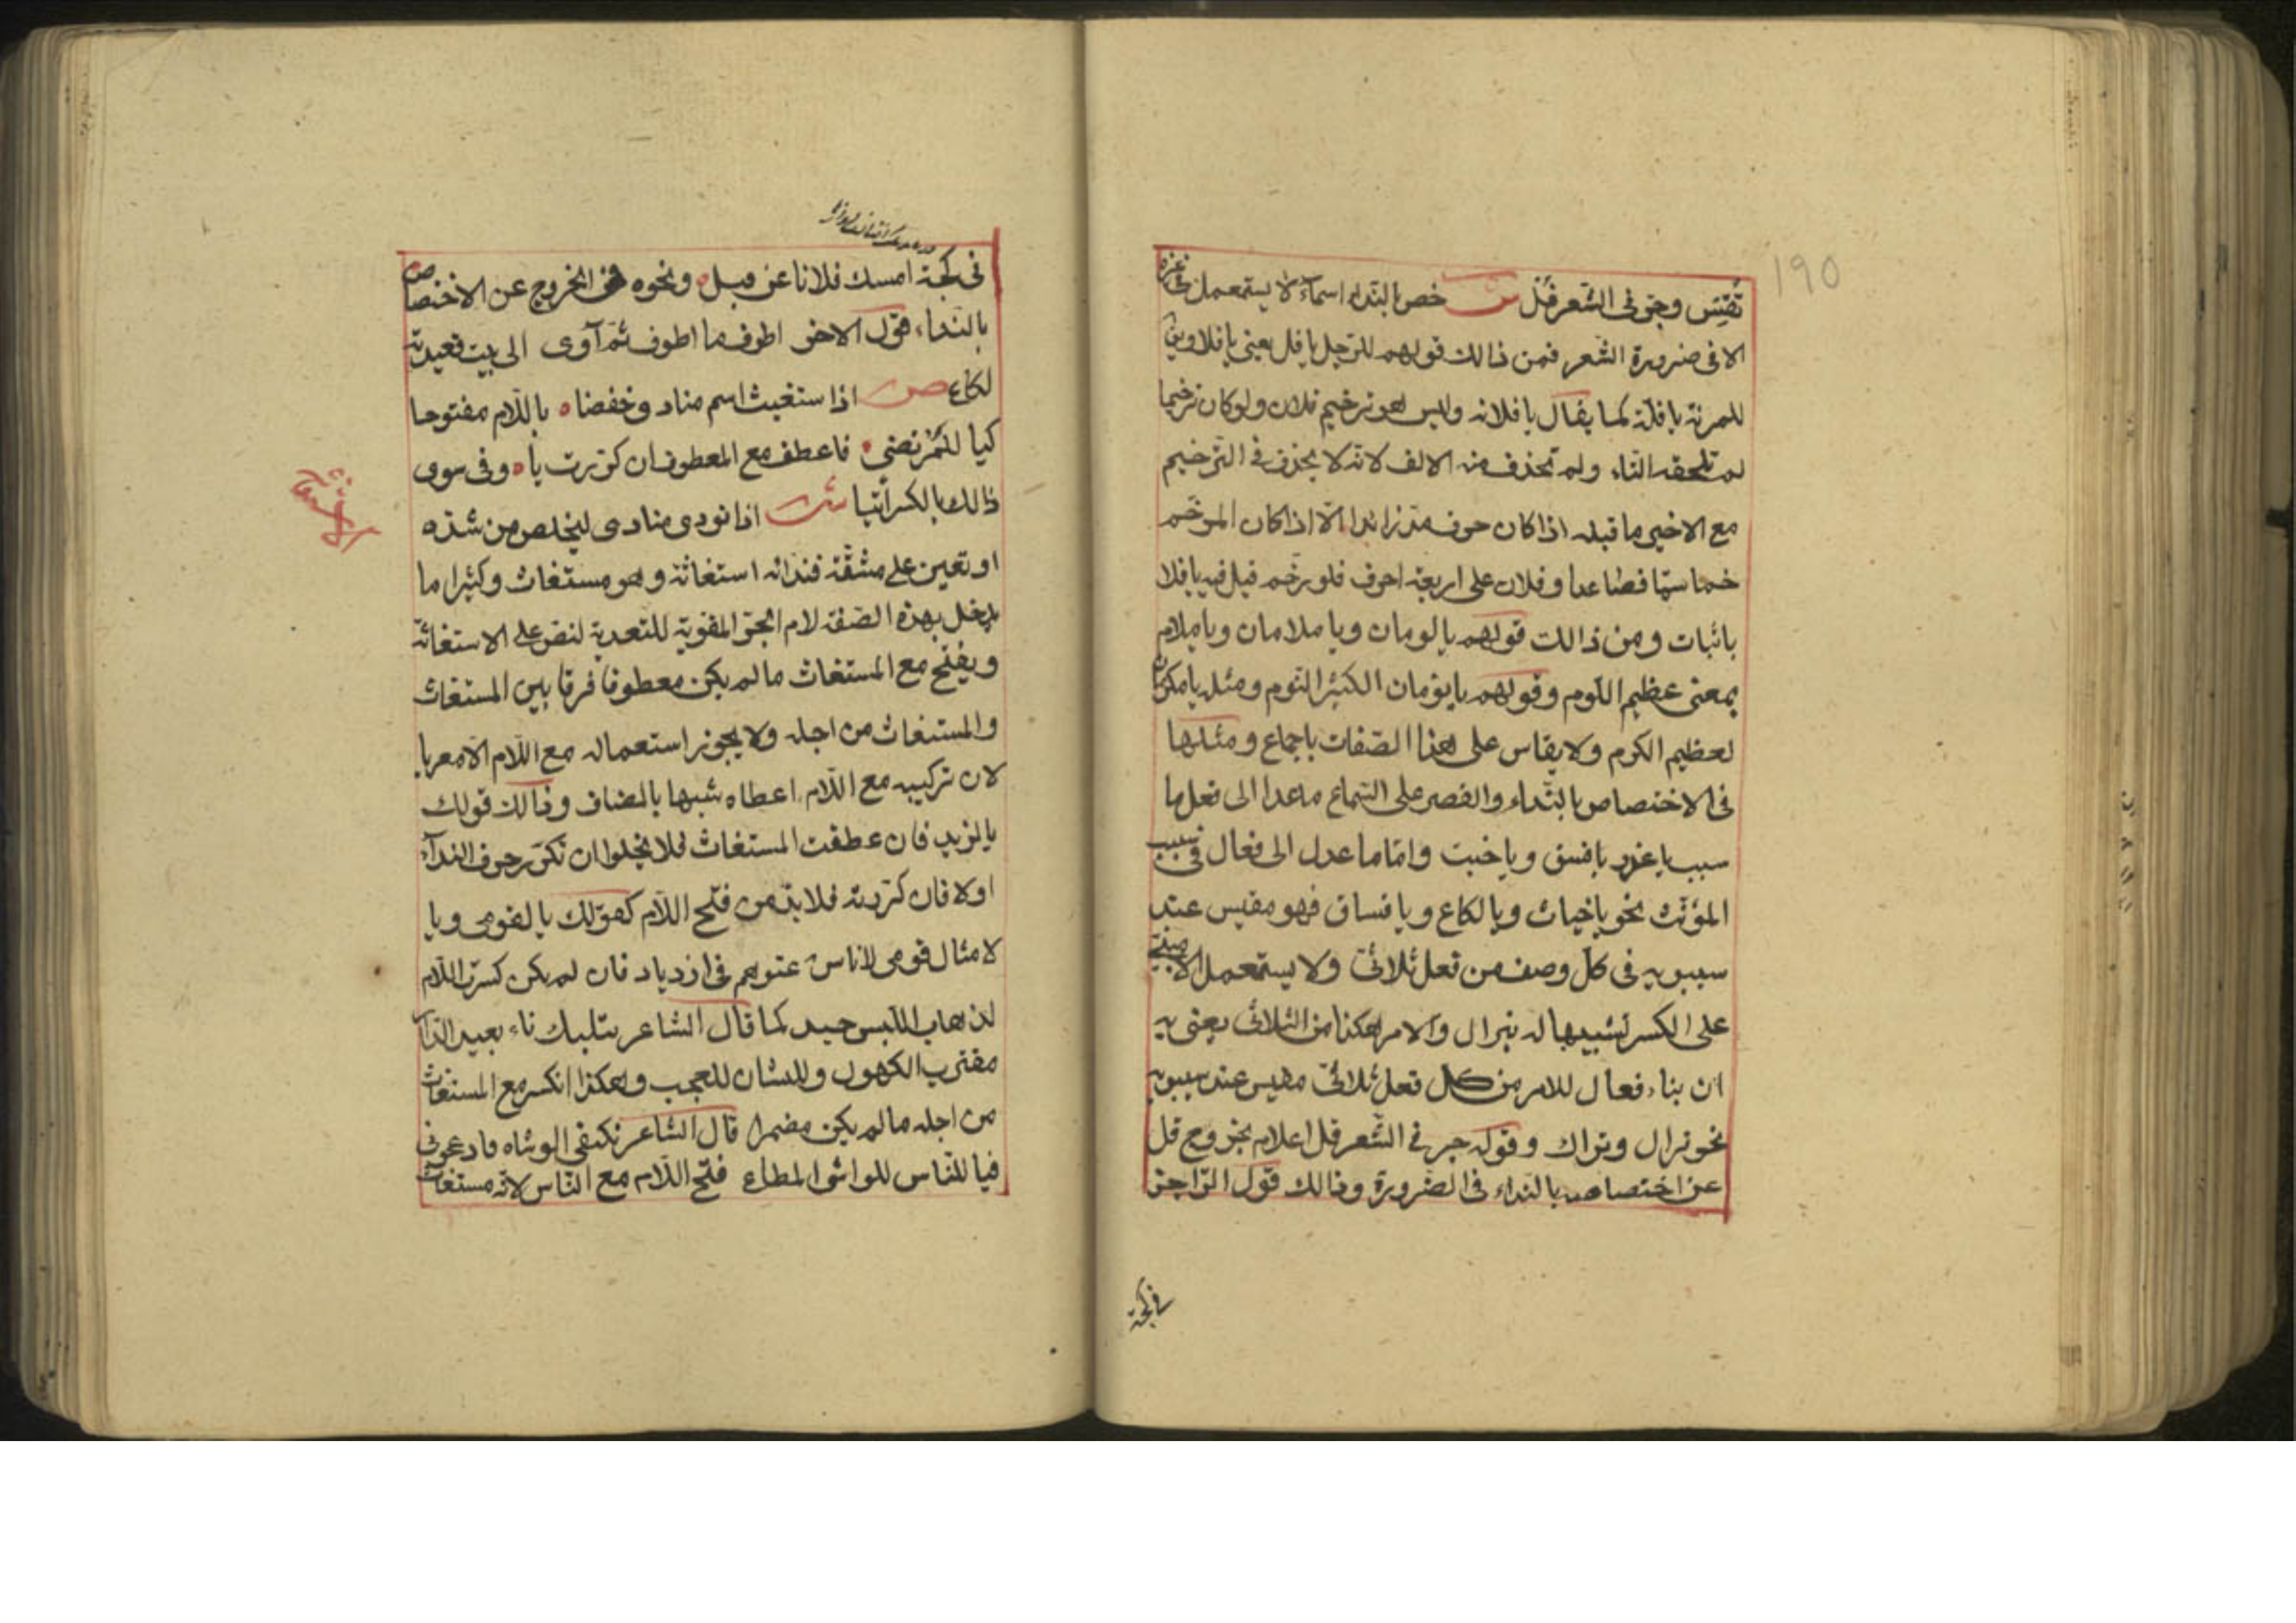 190
تقس وجر فى الشعر فل ش خص بالنداء اسماء لا يستعمل فى غيره
الا فى ضرورة الشعر فمن ذالك قولهم للرجل يا فل يعنى يا فلا وين
للمرئة يا فلة كما يقال يا فلانه وليس هو ترخيم فلان ولو كان ترخيما
لم تلحقه التاء ولم تحذف منه الالف لانه لا يحذف فى الترخيم
مع الاخير ما قبله اذا كان حرف مد زائدا الا اذا كان المرخم
خماسيا فصاعدا وفلان على اربعة احرف فلو رخم قيل فيه يا فلا
باثبات ومن ذالك قولهم يا لومان ويا ملامان ويا ملام
بمعنى عظيم اللوم وقولهم يا نومان الكثير النوم ومثله يا مكرمان
لعظيم الكرم ولا يقاس على هذا الصفات باجماع ومثلها
فى الاختصاص بالنداء والقصر على السماع ما عدا الى فعل ما
سبب يا غدر يا فسق ويا خبث واما ما عدل الى فعال فى سبب
المؤنث نحو يا خباث ويا لكاع ويا فساق فهو مقيس عند
سيبويه فى كل وصف من فعل ثلاثى ولا يستعمل الا مبنى
على الكسر تشبيها له بنزال والامر هكذا من الثلاثى يعنى به
ان بناء فعال للامر من كل فعل ثلاثى مقيس عند سيبويه
نحو نزال وتراك وقوله جر فى الشعر فل اعلام بخروج فل
عن اختصاصه بالنداء فى الضرورة وذالك قول الراجز
فى لجة
فى لجة امسك فلانا عن فل ونحوه فى الخروج عن الاختصاص
بالنداء قول الاخر اطوف ما اطوف ثم آوى الى بيت قعيدته
لكاع ص اذا ستغيث اسم مناد وخفضا باللام مفتوحا
كيا للمرتضى فاعطف مع المعطوف ان كررت يا وفى سوى
ذالك بالكسر ائتيا ش اذا نودى منادى ليخلص من شده
او تعين على مشقة فندائه استغاثة وهو مستغاث وكثيرا ما
يدخل بهذه الصفة لام الجر المقوية للتعدية لنص على الاستغاثة
ويفتح مع المستغاث ما لم يكن معطوفا فرقا بين المستغاث
والمستغاث من اجله ولا يجوز استعماله مع اللام الا معربا
لان تركيبه مع اللام اعطاه شبها بالمضاف وذالك قولك
يا لزيد فان عطفت المستغاث فلا يخلوا ان تكرر حرف النداء
اولا فان كررته فلا بد من فتح اللام كقولك يا لقومى ويا
لامثال قومى لاناس عتوهم فى ازدياد فان لم يكن كسرت اللام
لذهاب اللبس حيد كما قال الشاعر يتلبك ناء بعيد الدار
مغترب الكهول وللشان للعجب وهكذا انكسر مع المستغاث
من اجله ما لم يكن مضمرا قال الشاعر تكنفى الوشاه فادعونى
فيا للناس للواشى المطاع فتح اللام مع الناس لانه مستغاث